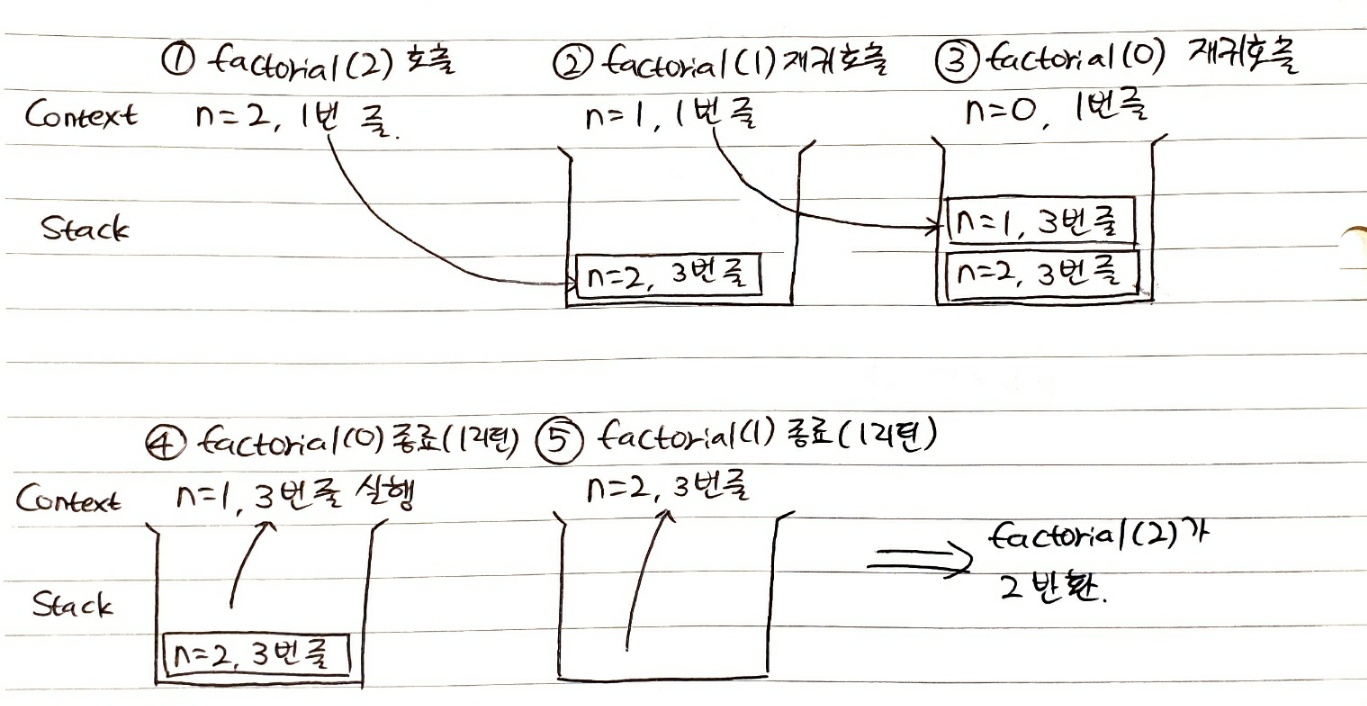 ① factorial(2) 호출 ② factorial(1) 재귀호출 ③ factorial(0) 재귀호출
Context n=2, 1번 줄. n=1, 1번 줄 n=0, 1번줄
Stack
n=1, 3번줄
n=2, 3번 줄 n=2, 3번줄
④ factorial(0) 종료(1리턴) ⑤ factorial(1) 종료(1리턴)
Context n=1, 3번줄 실행 n=2, 3번줄
factorial(2)가
2 반환.
Stack
n=2, 3번 줄